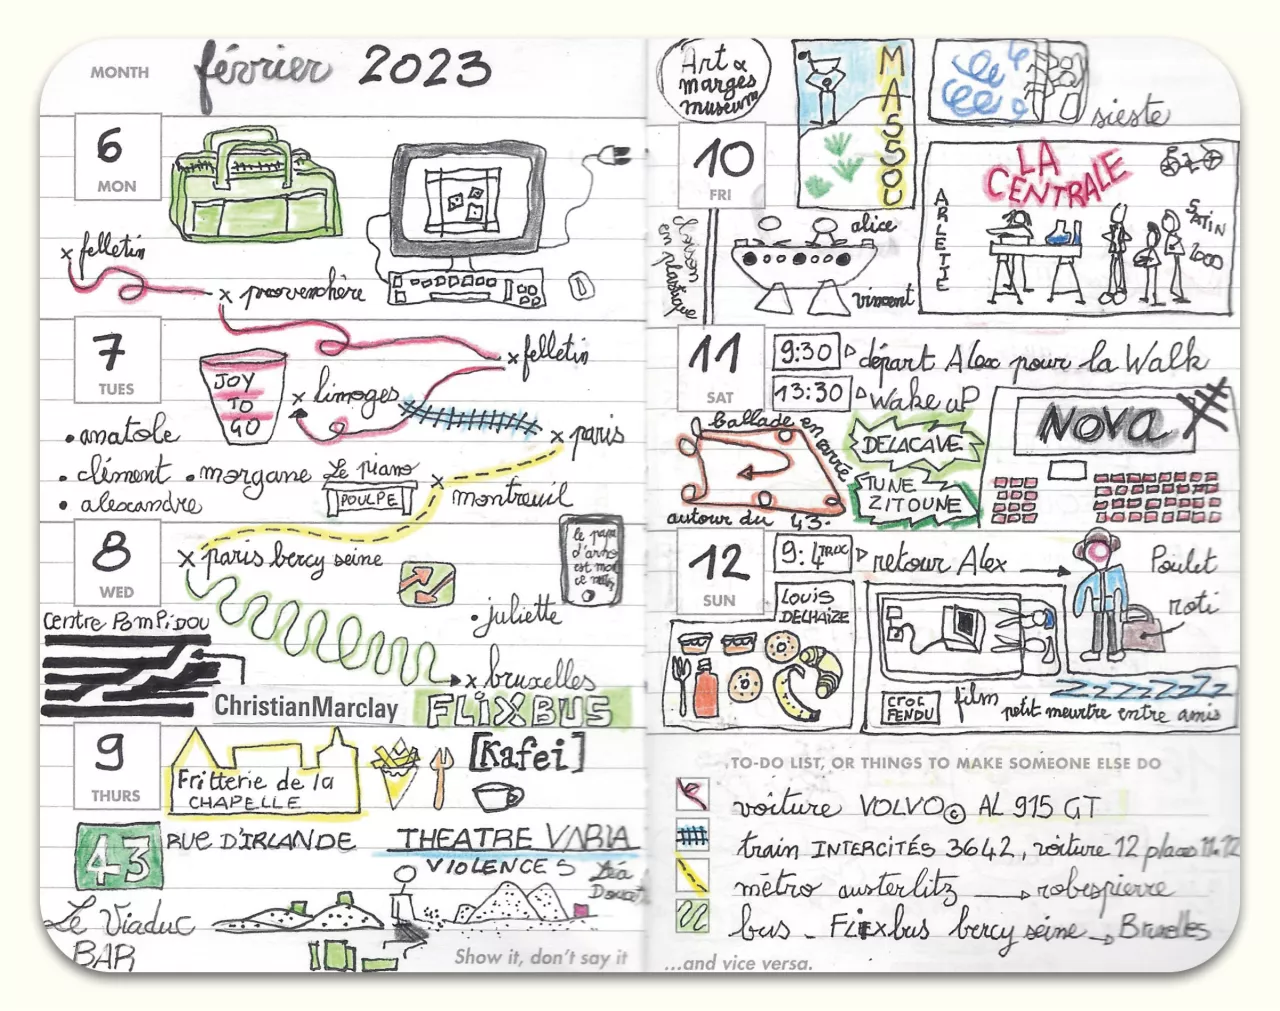 MONTH
février 2023
6
MON
x felletin
x provenchère
7
TUES
x felletin
JOY
TO
GO
x limoges
x paris
• anatole
• clément • morgane
• alexandre
Le piano
POULPE
x montreuil
8
WED
x paris bercy seine
le papa
d'arno
est mort
• juliette
Centre POMPIDOU
x bruxelles
ChristianMarclay
FLIXBUS
9
THURS
Fritterie de la
CHAPELLE
[Kafei]
43
RUE D'IRLANDE
THEATRE VARIA
VIOLENCES
Léa
Le Viaduc
BAR
Show it, don't say it
Art &
marges
museum
MASSOU
sieste
10
FRI
LA
CENTRALE
ARLETTE
SATIN
2000
en plastique
alice
vincent
11
SAT
9:30
départ Alex pour la Walk
13:30
Wake uP
ballade en carré
autour du 43.
DELACAVE
TUNE
ZITOUNE
NOVA
12
SUN
retour Alex
Poulet
roti
LOUIS
DELHAIZE
CROC
FENDU
film
petit meurtre entre amis
ZZZZZZZ
TO-DO LIST, OR THINGS TO MAKE SOMEONE ELSE DO
voiture VOLVO© AL 915 GT
train INTERCITÉS 3642, voiture 12 places 11.12
métro austerlitz → robespierre
bus - Flixbus bercy seine → Bruxelles
...and vice versa.